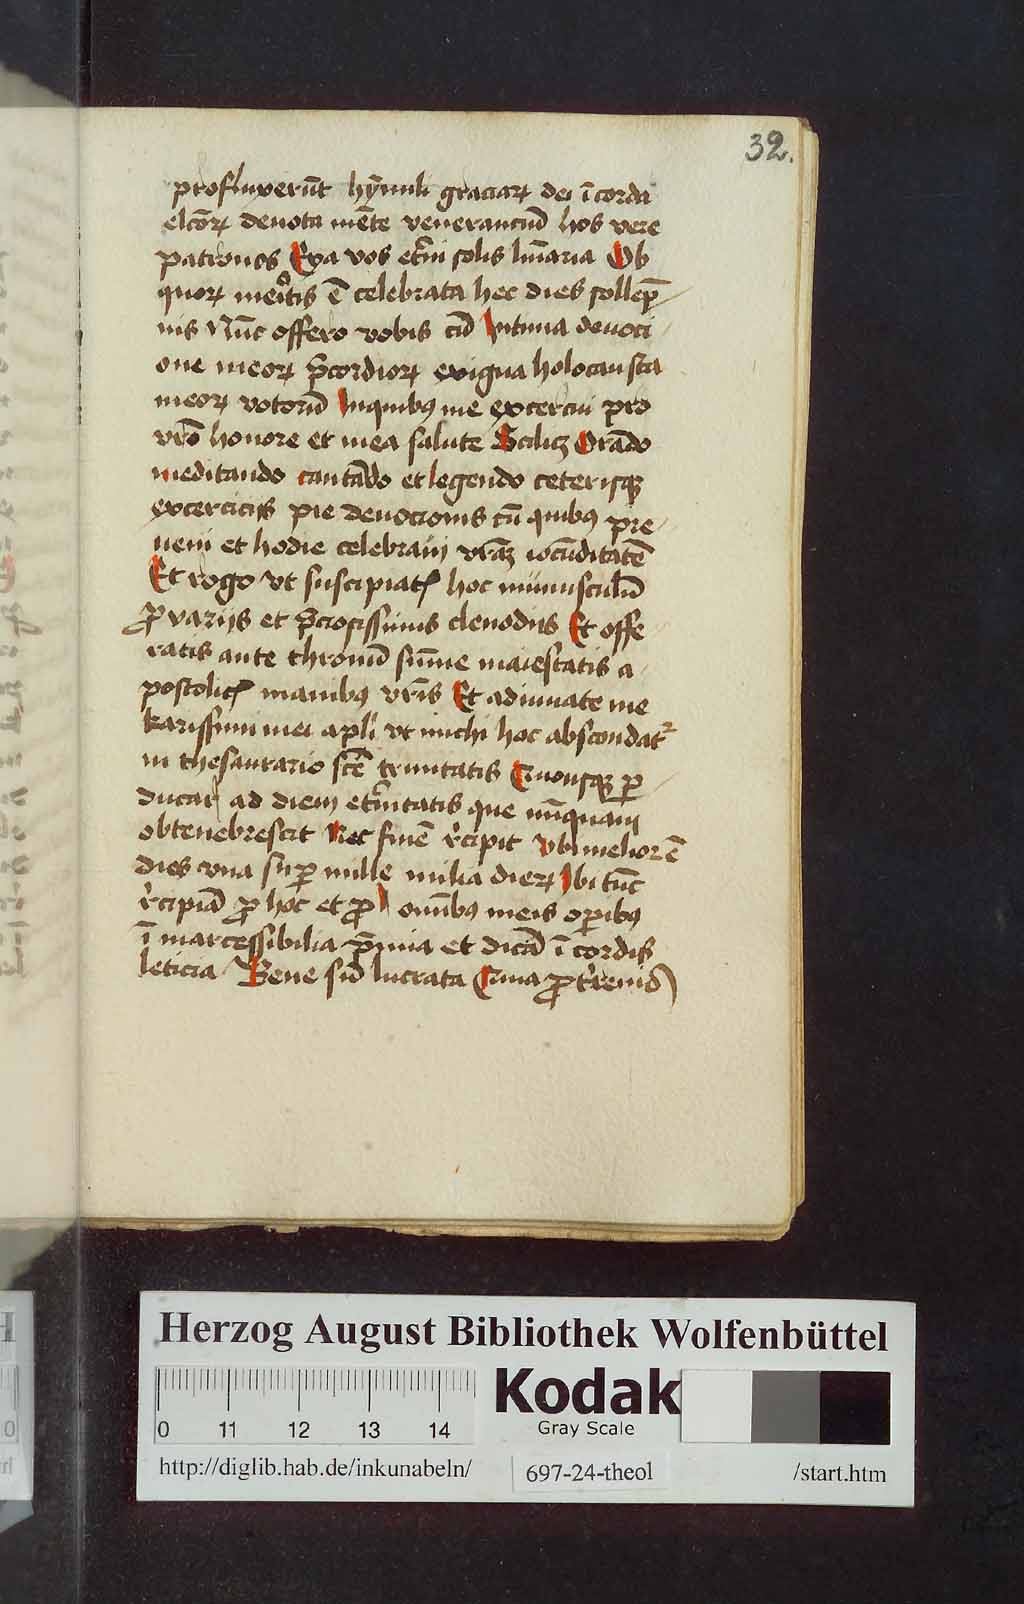 32.
profluxerūt hȳnuli graciaꝝ dei ī corda
elcōꝝ deuota mēte veneranciū hos vere
patronos Eya vos etīni solis lūīaria Ob
quoꝝ meitis ē celebrata hec dies sollep̄
nis Nūc offero vobis cū Intima deuoci
one meoꝝ p̄cordioꝝ exigua holocausta
meoꝝ votorū Inquibꝫ me excercui pro
vrō honore et mea salute Scilicꝫ Orādo
meditando cantādo et legendo ceterisqꝫ
excerciciis pie deuocionis cū quibꝫ pre
ueni et hodie celebraui vrāꝫ iocūditatē
Et rogo vt suscipiatꝭ hoc munusculū
ꝓ varijs et p̄ciosissimis clenodiis Et offe
ratis ante thronū sūme maiestatis a
postolicꝭ manibꝫ vrīs Et adiuuate me
karissimi mei apli vt michi hoc abscondat᷑
in thesaurario scē trinitatis Quousqꝫ ꝑ
ducar ad diem etīnitatis que nūquam
obtenebrescit Nec finē rͨcipit Vbi melior ē
dies vna suꝑ mille milia dieꝝ Ibi tūc
rͨcipiā ꝓ hoc et ꝓ omībꝫ meis oꝑibꝫ
īmarcessibilia p̄mia et dicā ī cordis
leticia Bene sū lucrata Quia ꝓ tͬrenis
Herzog August Bibliothek Wolfenbüttel
0 11 12 13 14
Kodak
Gray Scale
http://diglib.hab.de/inkunabeln/ 697-24-theol /start.htm